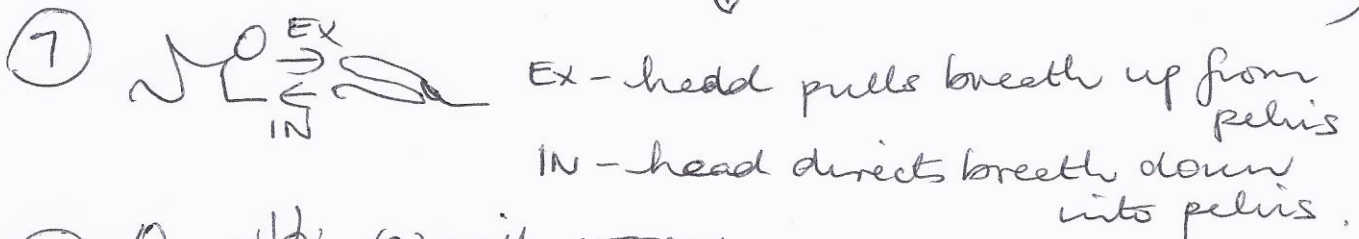 7
EX
IN
EX - head pulls breath up from
pelvis
IN - head directs breath down
into pelvis.